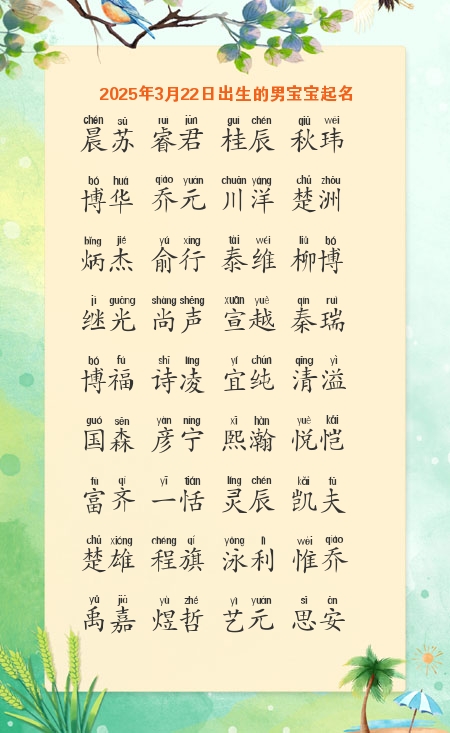 2025年3月22日出生的男宝宝起名
chén sū ruì jūn guì chén qiū wěi
晨苏 睿君 桂辰 秋玮
bó huá qiáo yuán chuān yáng chǔ zhōu
博华 乔元 川洋 楚洲
bǐng jié yú xíng tài wéi liǔ bó
炳杰 俞行 泰维 柳博
jì guāng shàng shēng xuān yuè qín ruì
继光 尚声 宣越 秦瑞
bó fú shī líng yí chún qīng yì
博福 诗凌 宜纯 清溢
guó sēn yàn níng xī hàn yuè kǎi
国森 彦宁 熙瀚 悦恺
fù qí yī tián líng chén kǎi fū
富齐 一恬 灵辰 凯夫
chǔ xióng chéng qí yǒng lì wéi qiáo
楚雄 程旗 泳利 惟乔
yǔ jiā yù zhé yì yuán sī ān
禹嘉 煜哲 艺元 思安